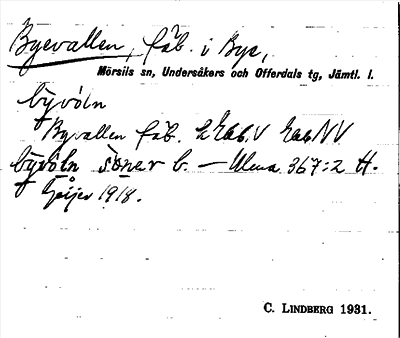 Byevallen, fäb. i Bye,
Mörsils sn, Undersåkers och Offerdals tg, Jämtl. l.
bývöln
Byvallen fäb. 2 Eab.V EabNV
bývöln söner b. — Ulma 367:2 H.
Geijer 1918.
C. LINDBERG 1931.